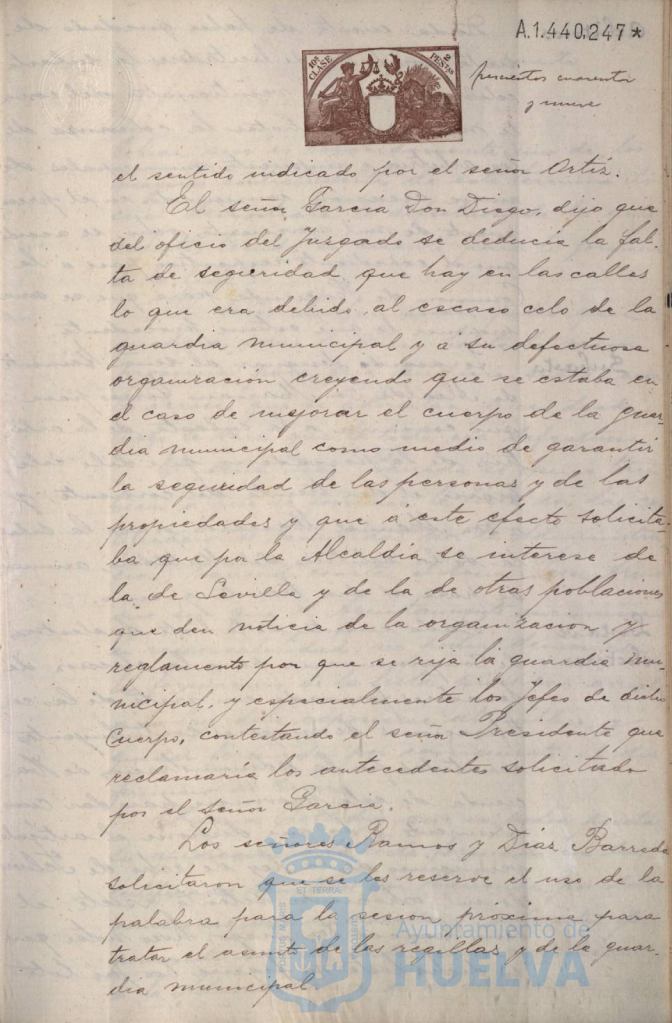 A.1.440.247*
10ª CLASE
2 PESTAS
cuarenta
y nueve
el sentido indicado por el señor Ortiz.
El señor Garcia Don Diego, dijo que
del oficio del Juzgado se deducia la fal-
ta de seguridad que hay en las calles
lo que era debido al escaso celo de la
guardia municipal y á su defectuosa
organización creyendo que se estaba en
el caso de mejorar el cuerpo de la guar-
dia municipal como medio de garantir
la seguridad de las personas y de las
propiedades y que á este efecto solicita-
ba que por la Alcaldía se interese de
la de Sevilla y de la de otras poblaciones
que den noticia de la organizacion y
reglamento por que se rija la guardia mu-
nicipal, y especialmente los Jefes de dicho
Cuerpo, contestando el señor Presidente que
reclamaría los antecedentes solicitado
por el señor Garcia.
Los señores Ramos y Díaz Barreda
solicitaron que se les reserve el uso de la
palabra para la sesion próxima para
tratar el asunto de las regillas y de la guar-
dia municipal.
Ayuntamiento de
HUELVA